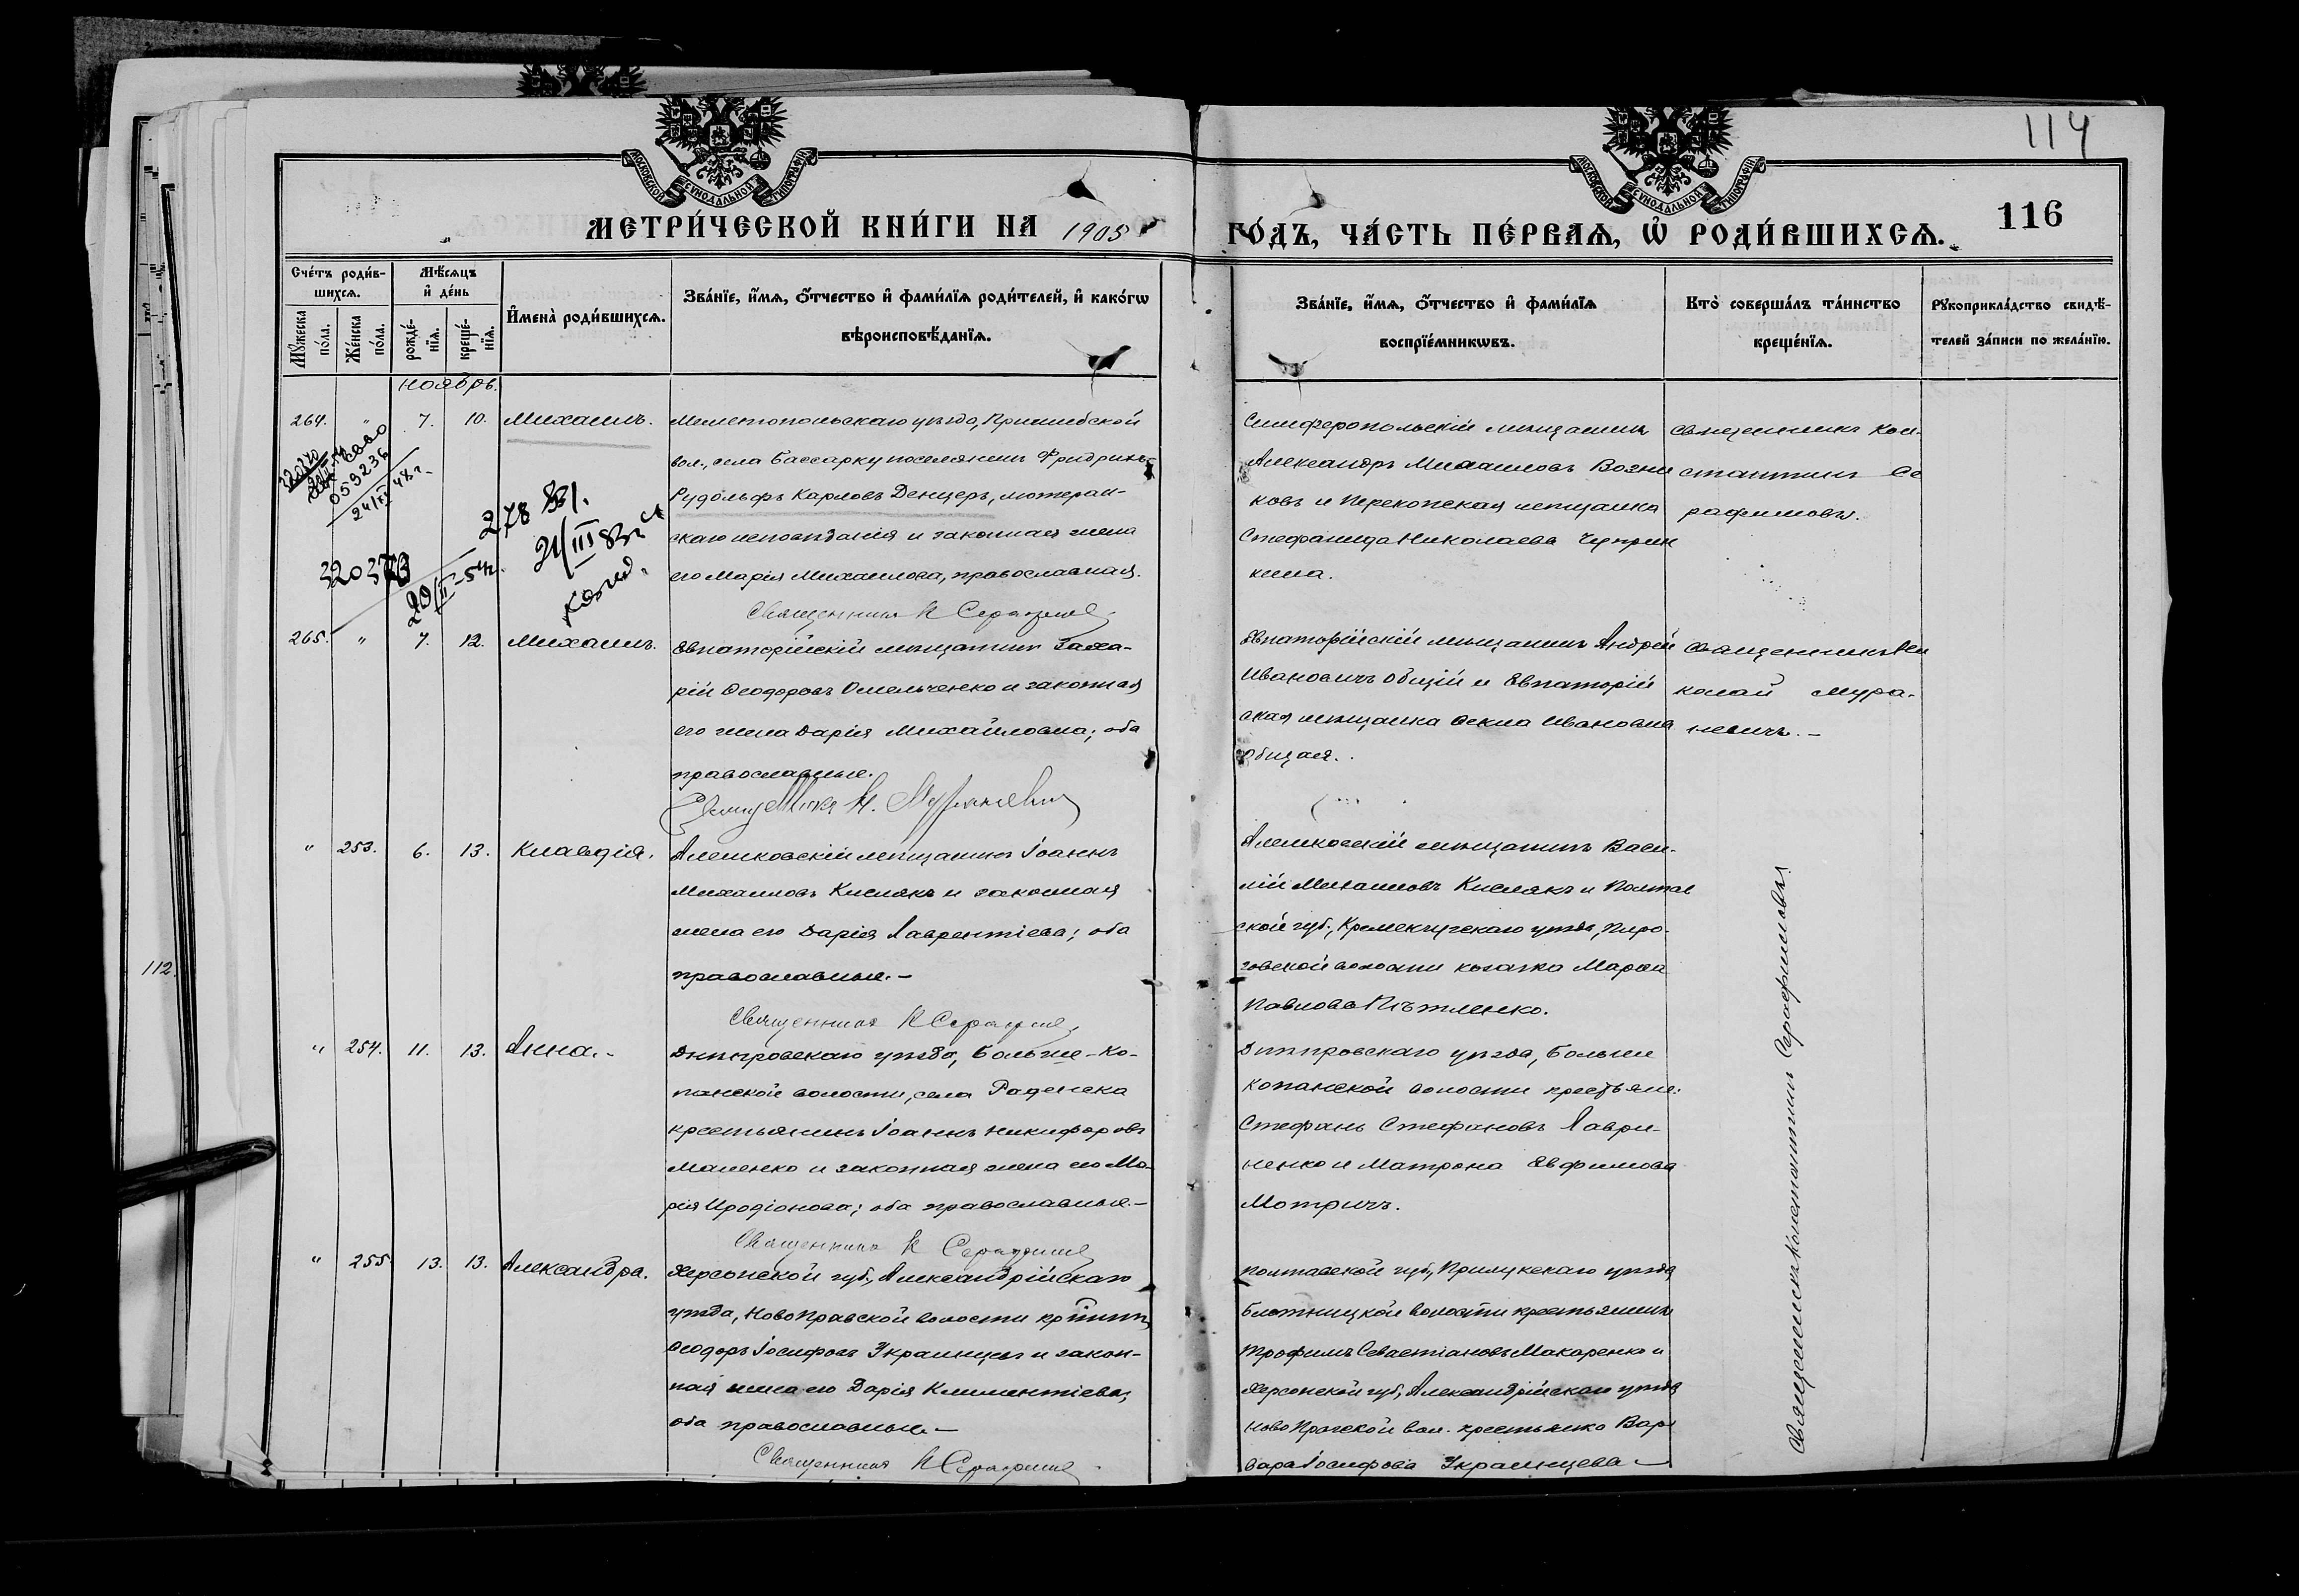 114
МОСКОВСКОЙ СѴНОДАЛЬНОЙ ТИПОГРАФІИ
МОСКОВСКОЙ СѴНОДАЛЬНОЙ ТИПОГРАФІИ
МЕТРИ́ЧЕСКОЙ КНИ́ГИ НА 1905
ГО́ДЪ, ЧА́СТЬ ПЕ́РВАѦ, Ѡ҆ РОДИ́ВШИХСѦ.
116
Сче́тъ роди́в-
шихсѧ.
Мꙋ́жеска по́ла.
Же́нска по́ла.
Мѣ́сѧцъ
и҆ де́нь
рожде́-
нїѧ.
креще́-
нїѧ.
И҆мена̀ роди́вшихсѧ.
Зва́нїе, и҆́мѧ, ѻ҆́тчество и҆ фами́лїѧ роди́телей, и҆ како́гѡ
вѣроисповѣ́данїѧ.
Зва́нїе, и҆́мѧ, ѻ҆́тчество и҆ фами́лїѧ
воспрїе́мникѡвъ.
Кто̀ соверша́лъ та́инство
креще́нїѧ.
Рꙋкоприкла́дство свидѣ́-
телей за́писи по жела́нїю.
ноябрь.
264. " 7. 10. Михаилъ.
Мелитопольскаго уѣзда, Пришибской
вол., села Бассарку поселянинъ Фридрихъ-
Рудольфъ Карловъ Денцеръ, лютеран-
скаго исповѣданія и законная жена
его Марія Михаилова, православная.
Священникъ К Серафимов
Симферопольскій мѣщанинъ
Александръ Михаиловъ Возни
ковъ и Перекопская мѣщанка
Стефанида Николаева Чуприн
кина.
Священникъ Кон-
стантинъ Се
рафимовъ.
059236
24/XI 48 г.
320373
20/II-54г.
278
21/III
265. " 7. 12. Михаилъ.
Евпаторійскій мѣщанинъ Заха-
рій Ѳеодоровъ Омельченко и законная
его жена Дарія Михайловна; оба
православные.
Священникъ Н. Мураневич
Евпаторійскій мѣщанинъ Андрей
Ивановичъ Общій и Евпаторій
ская мѣщанка Ѳекла Ивановна
Общая.
Священникъ Ни
колай Мура-
невичъ.-
" 253. 6. 13. Клавдія.
Алешковскій мѣщанинъ Іоаннъ
Михаиловъ Кислякъ и законная
жена его Дарія Лаврентіева; оба
православные.-
Священникъ К Серафимов
Алешковскій мѣщанинъ Васи-
лій Михаиловъ Кислякъ и Полтав
ской губ., Кременчугскаго уѣзда, Пиро-
говской волости козачка Марѳа
Павлова Пѣтленко.
" 254. 11. 13. Анна.-
Днѣпровскаго уѣзда, Больше-Ко-
панской волости, села Раденска
крестьянинъ Іоаннъ Никифоровъ
Маленко и законная жена его Ма-
рія Иродіонова; оба православные.-
Священникъ К Серафимов
Днѣпровскаго уѣзда, Больше
Копанской волости крестьяне:
Стефанъ Стефановъ Лаври-
ненко и Матрона Евфимова
Мотричъ.
" 255. 13. 13. Александра.
Херсонской губ., Александрійскаго
уѣзда, НовоПражской волости
Ѳеодоръ Іосифовъ Украинцевъ и закон-
ная жена его Дарія Климентіева;
оба православные.-
Священникъ К Серафимов
Полтавской губ., Прилукскаго уѣзда
Блотницкой волости крестьянинъ
Трофимъ Севастіановъ Макаренко и
Херсонской губ., Александрійскаго уѣзда
НовоПражской вол. крестьянка Вар
вара Іосифова Украинцева-
Священникъ Константинъ Серафимовъ
112.